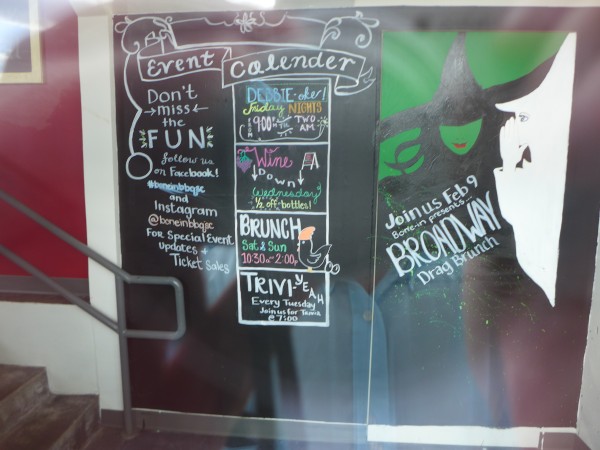 Event Calender
Don't
miss
the
FUN
follow us
on Facebook!
#boneinbbqjsc
and
Instagram
@boneinbbqjsc
For Special Event
Updates +
Ticket Sales
DEBBIE-oke!
Friday NIGHTS
9:00
TWO
AM
Wine
DOWN
Wednesday
1/2 off bottles!
BRUNCH
Sat & Sun
10:30 - 2:00
TRIVI-YEAH
Every Tuesday
Join us for Trivia
@ 7:00
Join us Feb 9
Bone-in presents...
BROADWAY
Drag Brunch